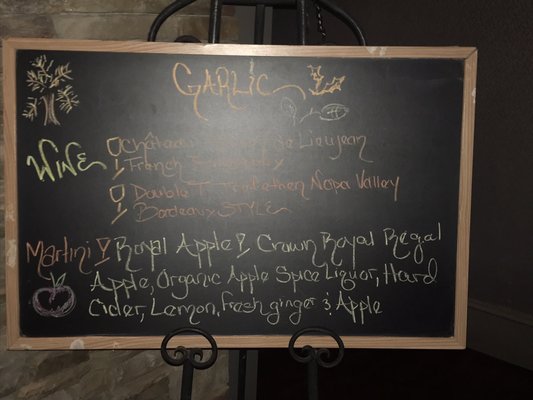 GARLIC
WINE
Château de Lieujean
French
Double T Trefethen Napa Valley
Bordeaux STYLE
Martini Royal Apple Crown Royal Regal
Apple, Organic Apple Spice Liquor, Hard
Cider, Lemon, Fresh ginger & Apple